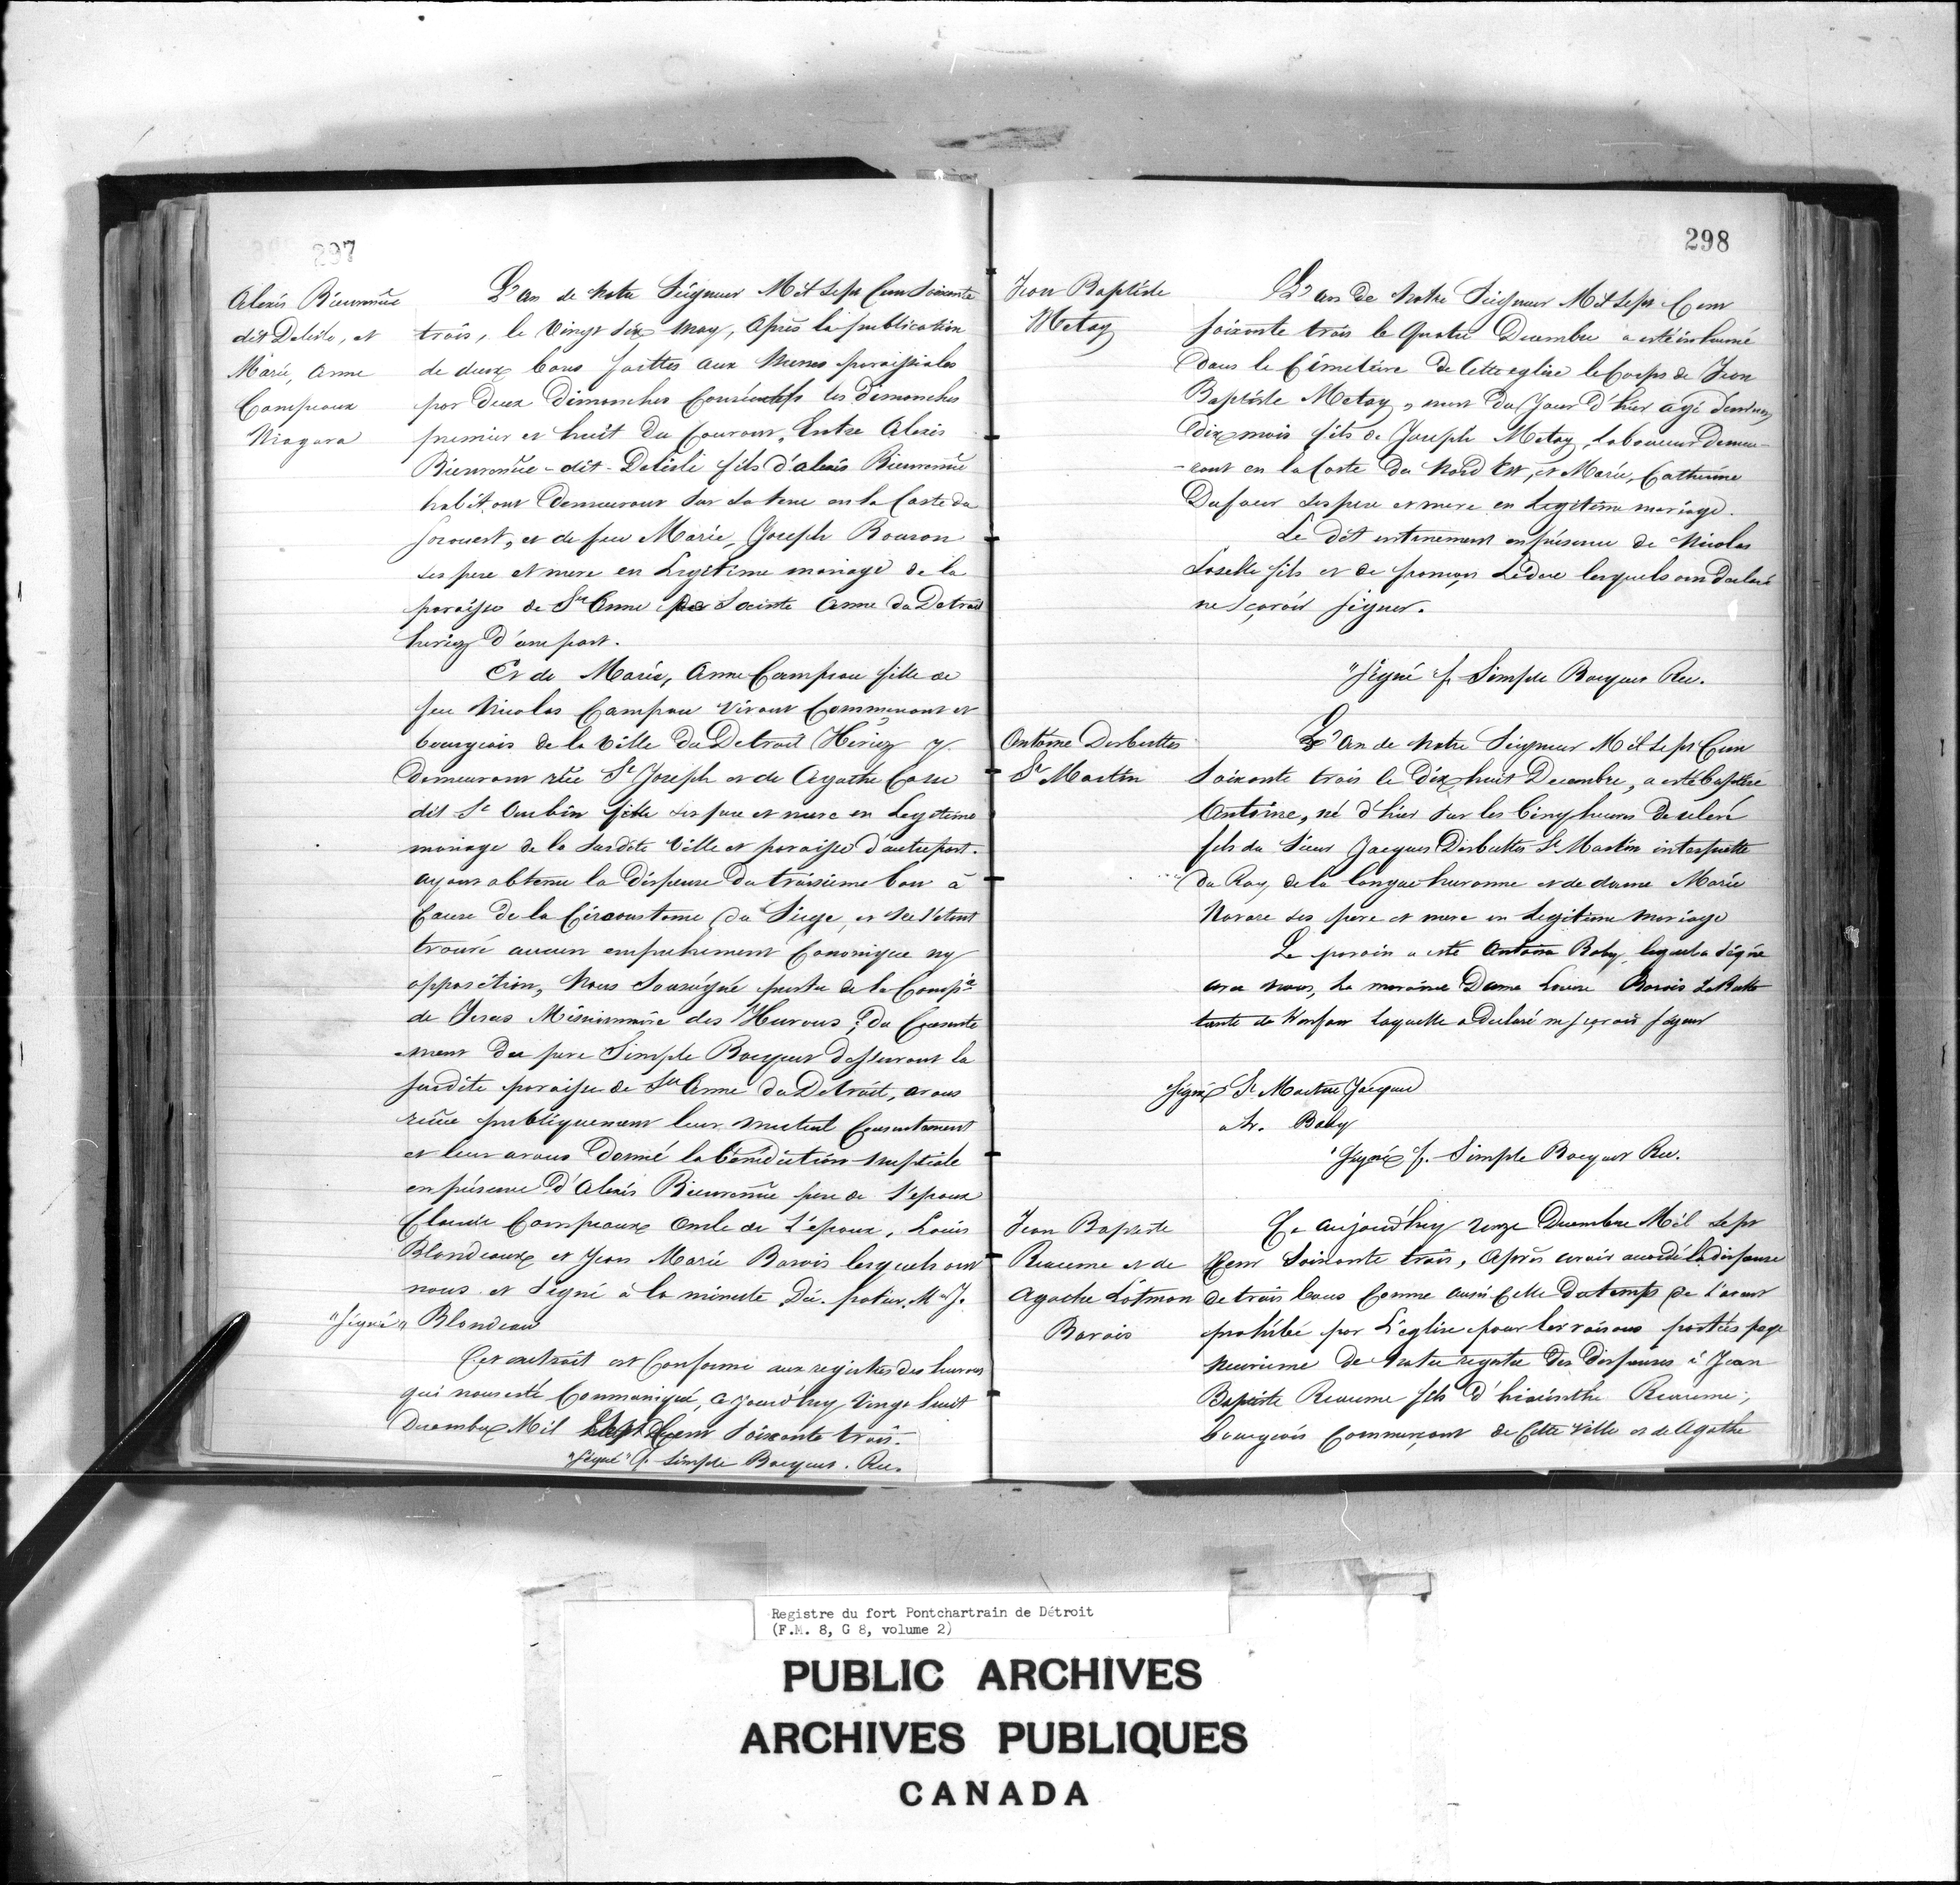 297
Alexis Bienvenüe
dit Delisle, et
Marie, Anne
Campeaux
Niagara
L'an de Notre Seigneur Mil Sept Cent Soixante
trois, le Vingt Six May, Après la publication
de deux bans faittes aux Messes paroissiales
par deux Dimanches Consécutifs les Dimanches
premier et huit du Courant, Entre Alexis
Bienvenüe - dit - Delisle fils d'alexis Bienvenüe
habitant Demeurant Sur Sa terre en la Coste du
Sorouest, et de feu Marie, Joseph Bouron
ses pere et mere en Legitime mariage de la
paroisse de Ste Anne Sainte Anne du Detroit
heriez d'une part.
Et de Marie, Anne Campeau fille de
feu Nicolas Campau Vivant Commerçant et
bourgeois de la Ville du Detroit Heriez y
Demeurant rüe St Joseph et de Agathe Casse
dit St Aubin fille ses pere et mere en Legitime
mariage de la Susdite Ville et paroisse d'autre part.
ayant obtenu la Dispense du troisieme ban à
Cause de la Circonstance du Siege, et ne s'etant
trouvé aucun empechement Canonique ny
opposition, Nous Soussigné prestre de la Compe
de Jesus Missionnaire des Hurons, du Consente
-ment du pere Simple Bocquet desservant la
susdite paroisse de Ste Anne du Detroit, avons
reçue publiquement leur mutuel Consentement
et leur avons Donné la bénédiction nuptiale
en présence d'Alexis Bienvenüe pere de l'epoux
Claude Campeaux Oncle de l'epoux, Louis
Blondeaux et Jean Marie Barois lesquels ont
nous et Signé à la minute Dü. potier. M. J.
"Signé" Blondeau
Cet extrait est Conforme aux registres des hurons
qui nous esté Communiqué, a jourd'huy Vingt huit
Decembre Mil Sept Cent Soixante trois.
"Signé" f. Simple Bocquet. Rec.
298
Jean Baptiste
Metay
L'an De Notre Seigneur Mil Sept Cent
soixante trois le Quatre Decembre a esté inhumé
Dans le Cémetière De Cette eglise le Corps de Jean
Baptiste Metay, mort du Jour D'hier agé d'environ
Dix mois fils de Joseph Metay Laboureur Demeu-
-rant en la Coste du Nord Est, et Marie, Catherine
Dufour ses pere et mere en Legitime mariage.
Le dit enterrement en présence de Nicolas
Loselle fils et de françois Leduc lesquels ont declaré
ne sçavoir signer.
"Signé f. Simple Bocquet Rec.
Antoine Desbuttes
St Martin
L'an de Notre Seigneur Mil Sept Cent
Soixante trois le Dix huit Decembre, a esté baptisé
Antoine, né d'hier sur les Cinq heures De relevé
fils du Sieur Jacques Desbuttes St Martin interprette
Du Roy de la langue huronne et de dame Marie
Navare ses pere et mere en Legitime mariage
Le parain a esté Antoine Baby, lequel a Signé
avec nous, La maraine Dame Louise Barois
tante de l'enfant Laquelle a declaré ne sçavoir signer
Signé St Martin Jacque
Baby
"Signé f. Simple Bocquet Rec.
Jean Baptiste
Reaume et de
Agathe Lotman
Barois
Ce aujourd'huy onze Decembre Mil Sept
Cent Soixante trois, Après avoir accordé la dispense
de trois bans Comme aussi Celle Du temps De l'avent
prohibé par L'eglise pour les raisons portées page
neuvieme De Notre registre Des dispenses à Jean
Baptiste Reaume fils d'hiacinthe Reaume,
bourgeois Commerçant de Cette Ville et de Agathe
Registre du fort Pontchartrain de Détroit
(F.M. 8, G 8, volume 2)
PUBLIC ARCHIVES
ARCHIVES PUBLIQUES
CANADA